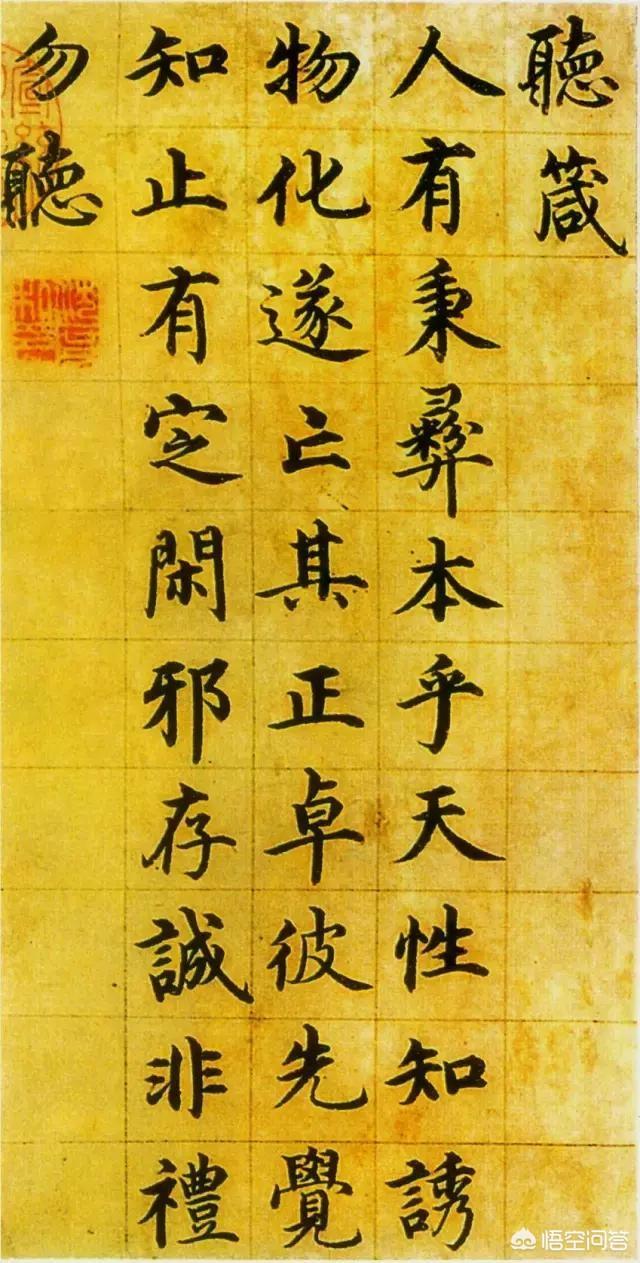 聽箴
人有秉彝本乎天性知誘
物化遂亡其正卓彼先覺
知止有定閑邪存誠非禮
勿聽
悟空问答